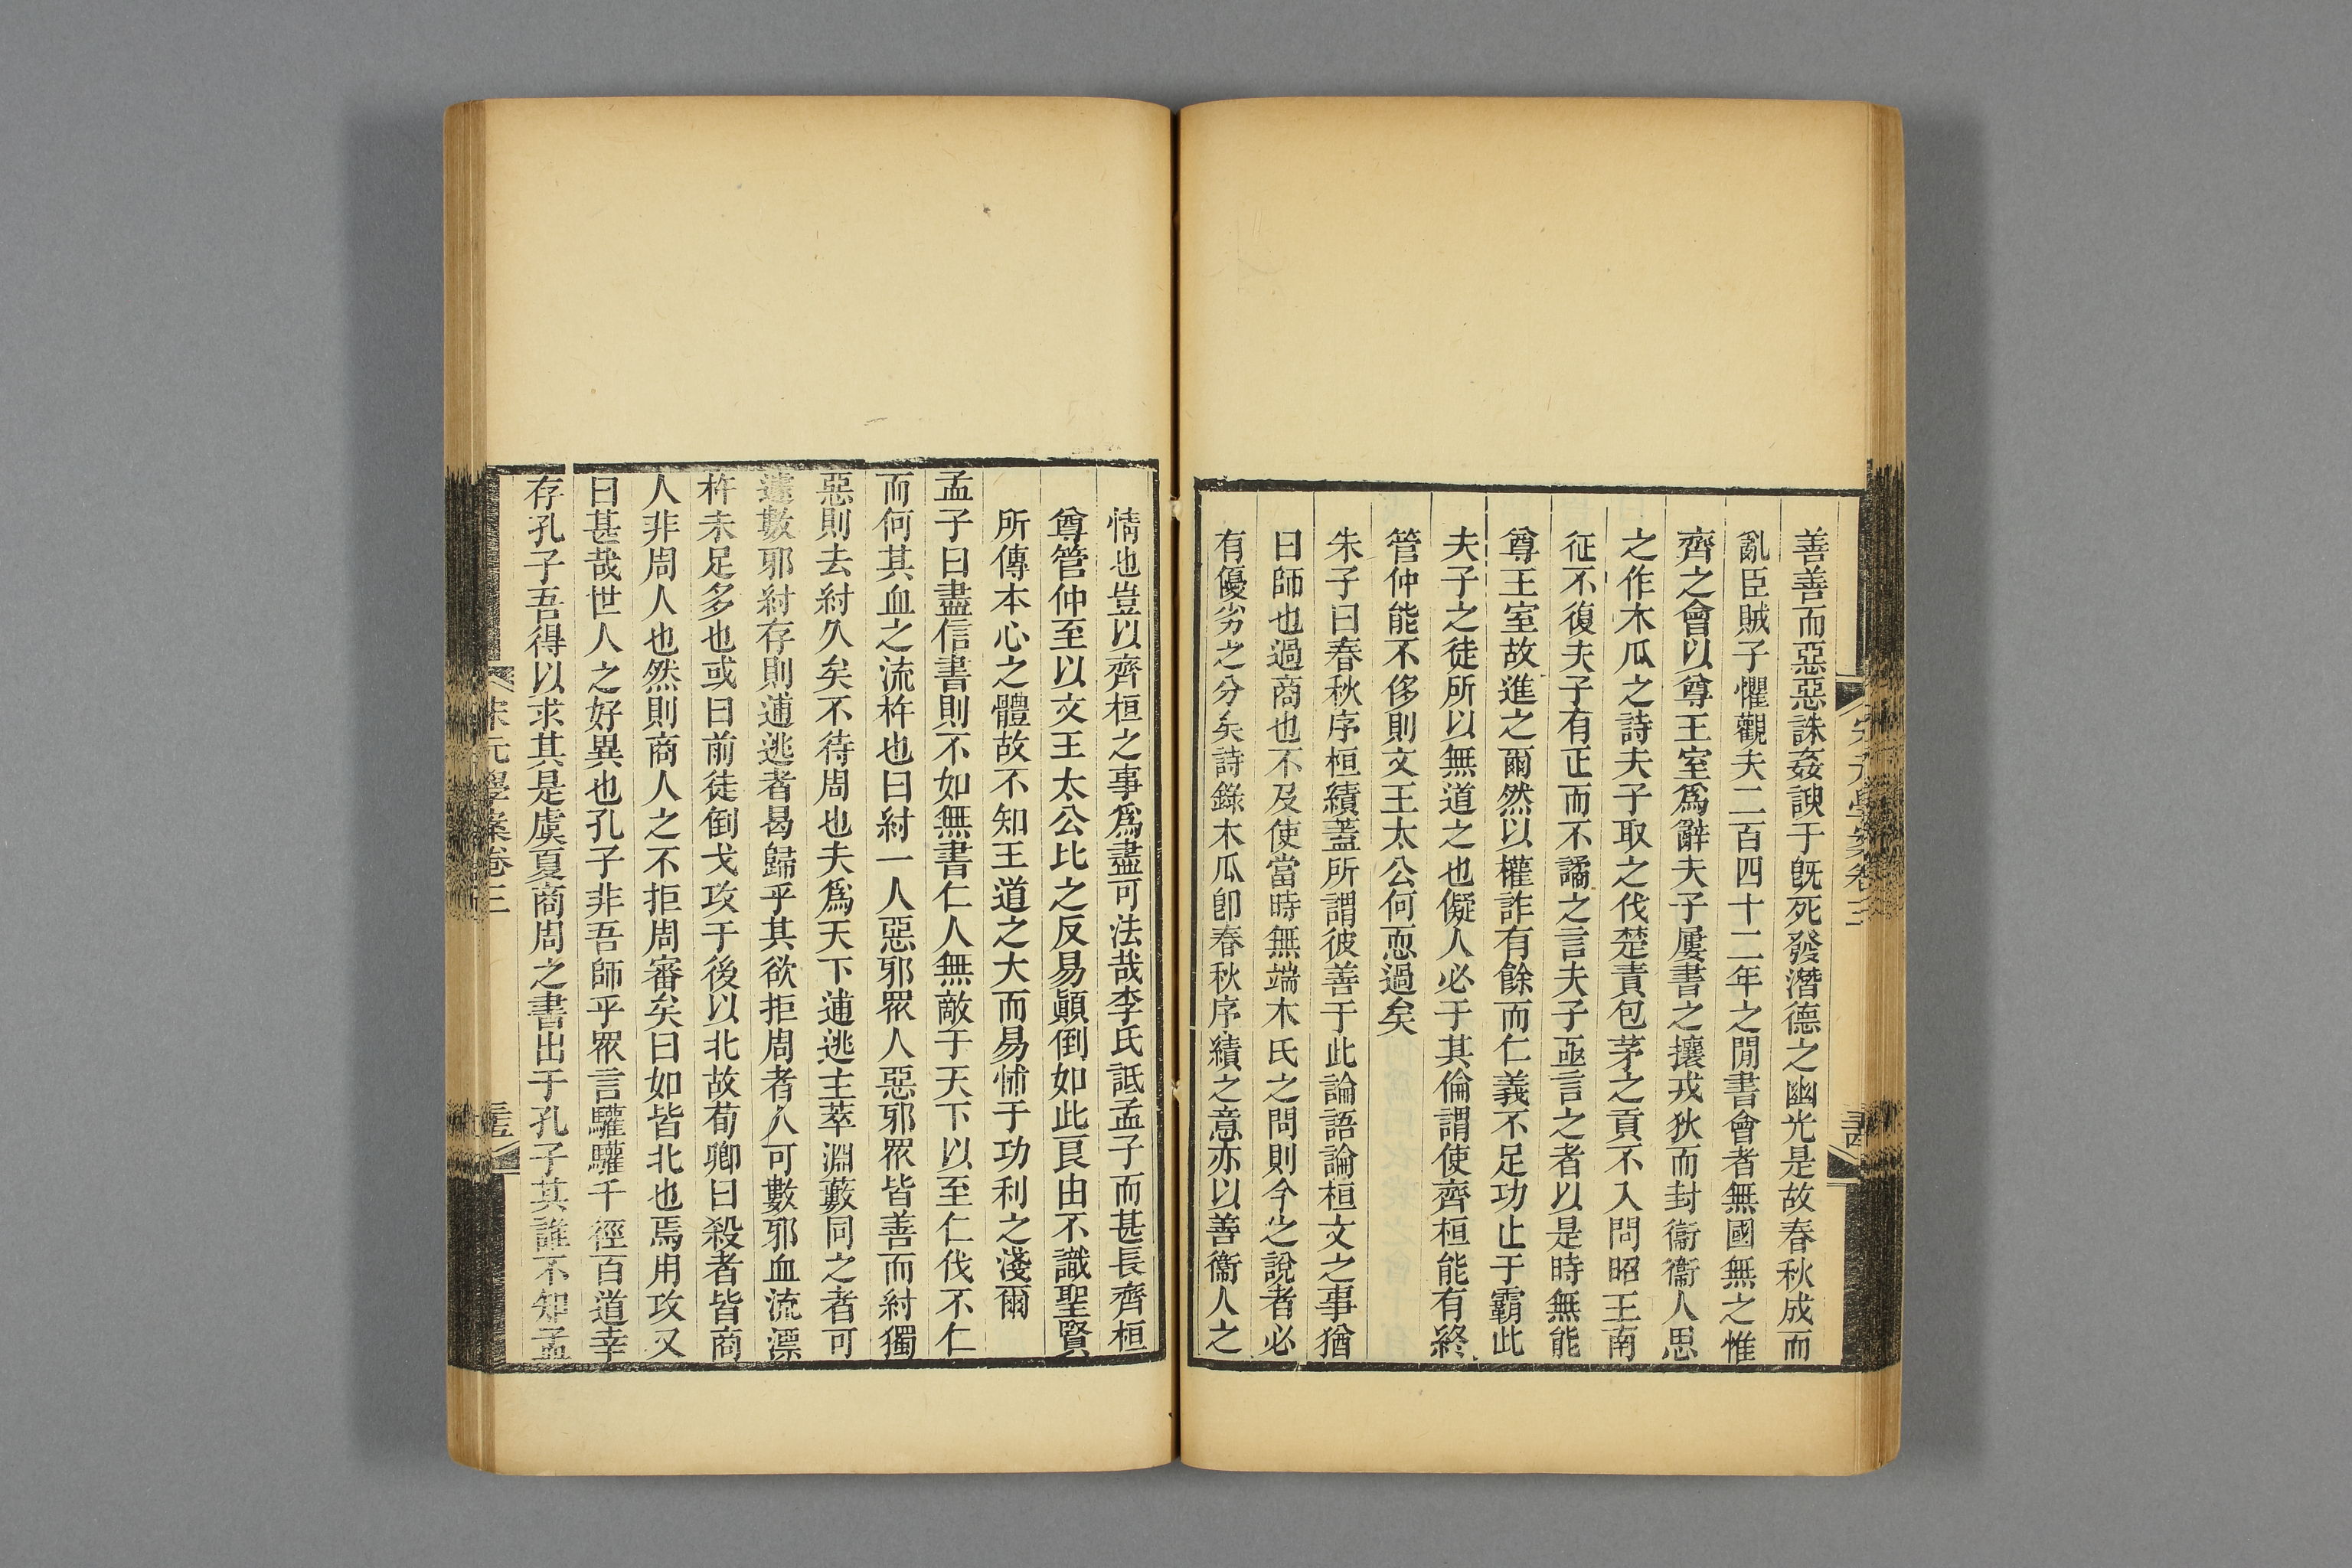 善善而惡惡誅姦諛于旣死發潛德之幽光是故春秋成而
亂臣賊子懼觀夫二百四十二年之閒書會者無國無之惟
齊之會以尊王室爲辭夫子屢書之攘戎狄而封衞衞人思
之作木瓜之詩夫子取之伐楚責包茅之貢不入問昭王南
征不復夫子有正而不譎之言夫子亟言之者以是時無能
尊王室故進之爾然以權詐有餘而仁義不足功止于霸此
夫子之徒所以無道之也儗人必于其倫謂使齊桓能有終
管仲能不侈則文王太公何恧過矣
朱子曰春秋序桓績蓋所謂彼善于此論語論桓文之事猶
曰師也過商也不及使當時無端木氏之問則今之說者必
有優劣之分矣詩錄木瓜卽春秋序績之意亦以善衞人之
情也豈以齊桓之事爲盡可法哉李氏詆孟子而甚長齊桓
尊管仲至以文王太公比之反易顚倒如此良由不識聖賢
所傳本心之體故不知王道之大而易怵于功利之淺爾
孟子曰盡信書則不如無書仁人無敵于天下以至仁伐不仁
而何其血之流杵也曰紂一人惡邪眾人惡邪眾皆善而紂獨
惡則去紂久矣不待周也夫爲天下逋逃主萃淵藪同之者可
遽數邪紂存則逋逃者曷歸乎其欲拒周者人可數邪血流漂
杵未足多也或曰前徒倒戈攻于後以北故荀卿曰殺者皆商
人非周人也然則商人之不拒周審矣曰如皆北也焉用攻又
曰甚哉世人之好異也孔子非吾師乎眾言驩驩千徑百道幸
存孔子吾得以求其是虞夏商周之書出于孔子其誰不知孟
宋元學案卷三